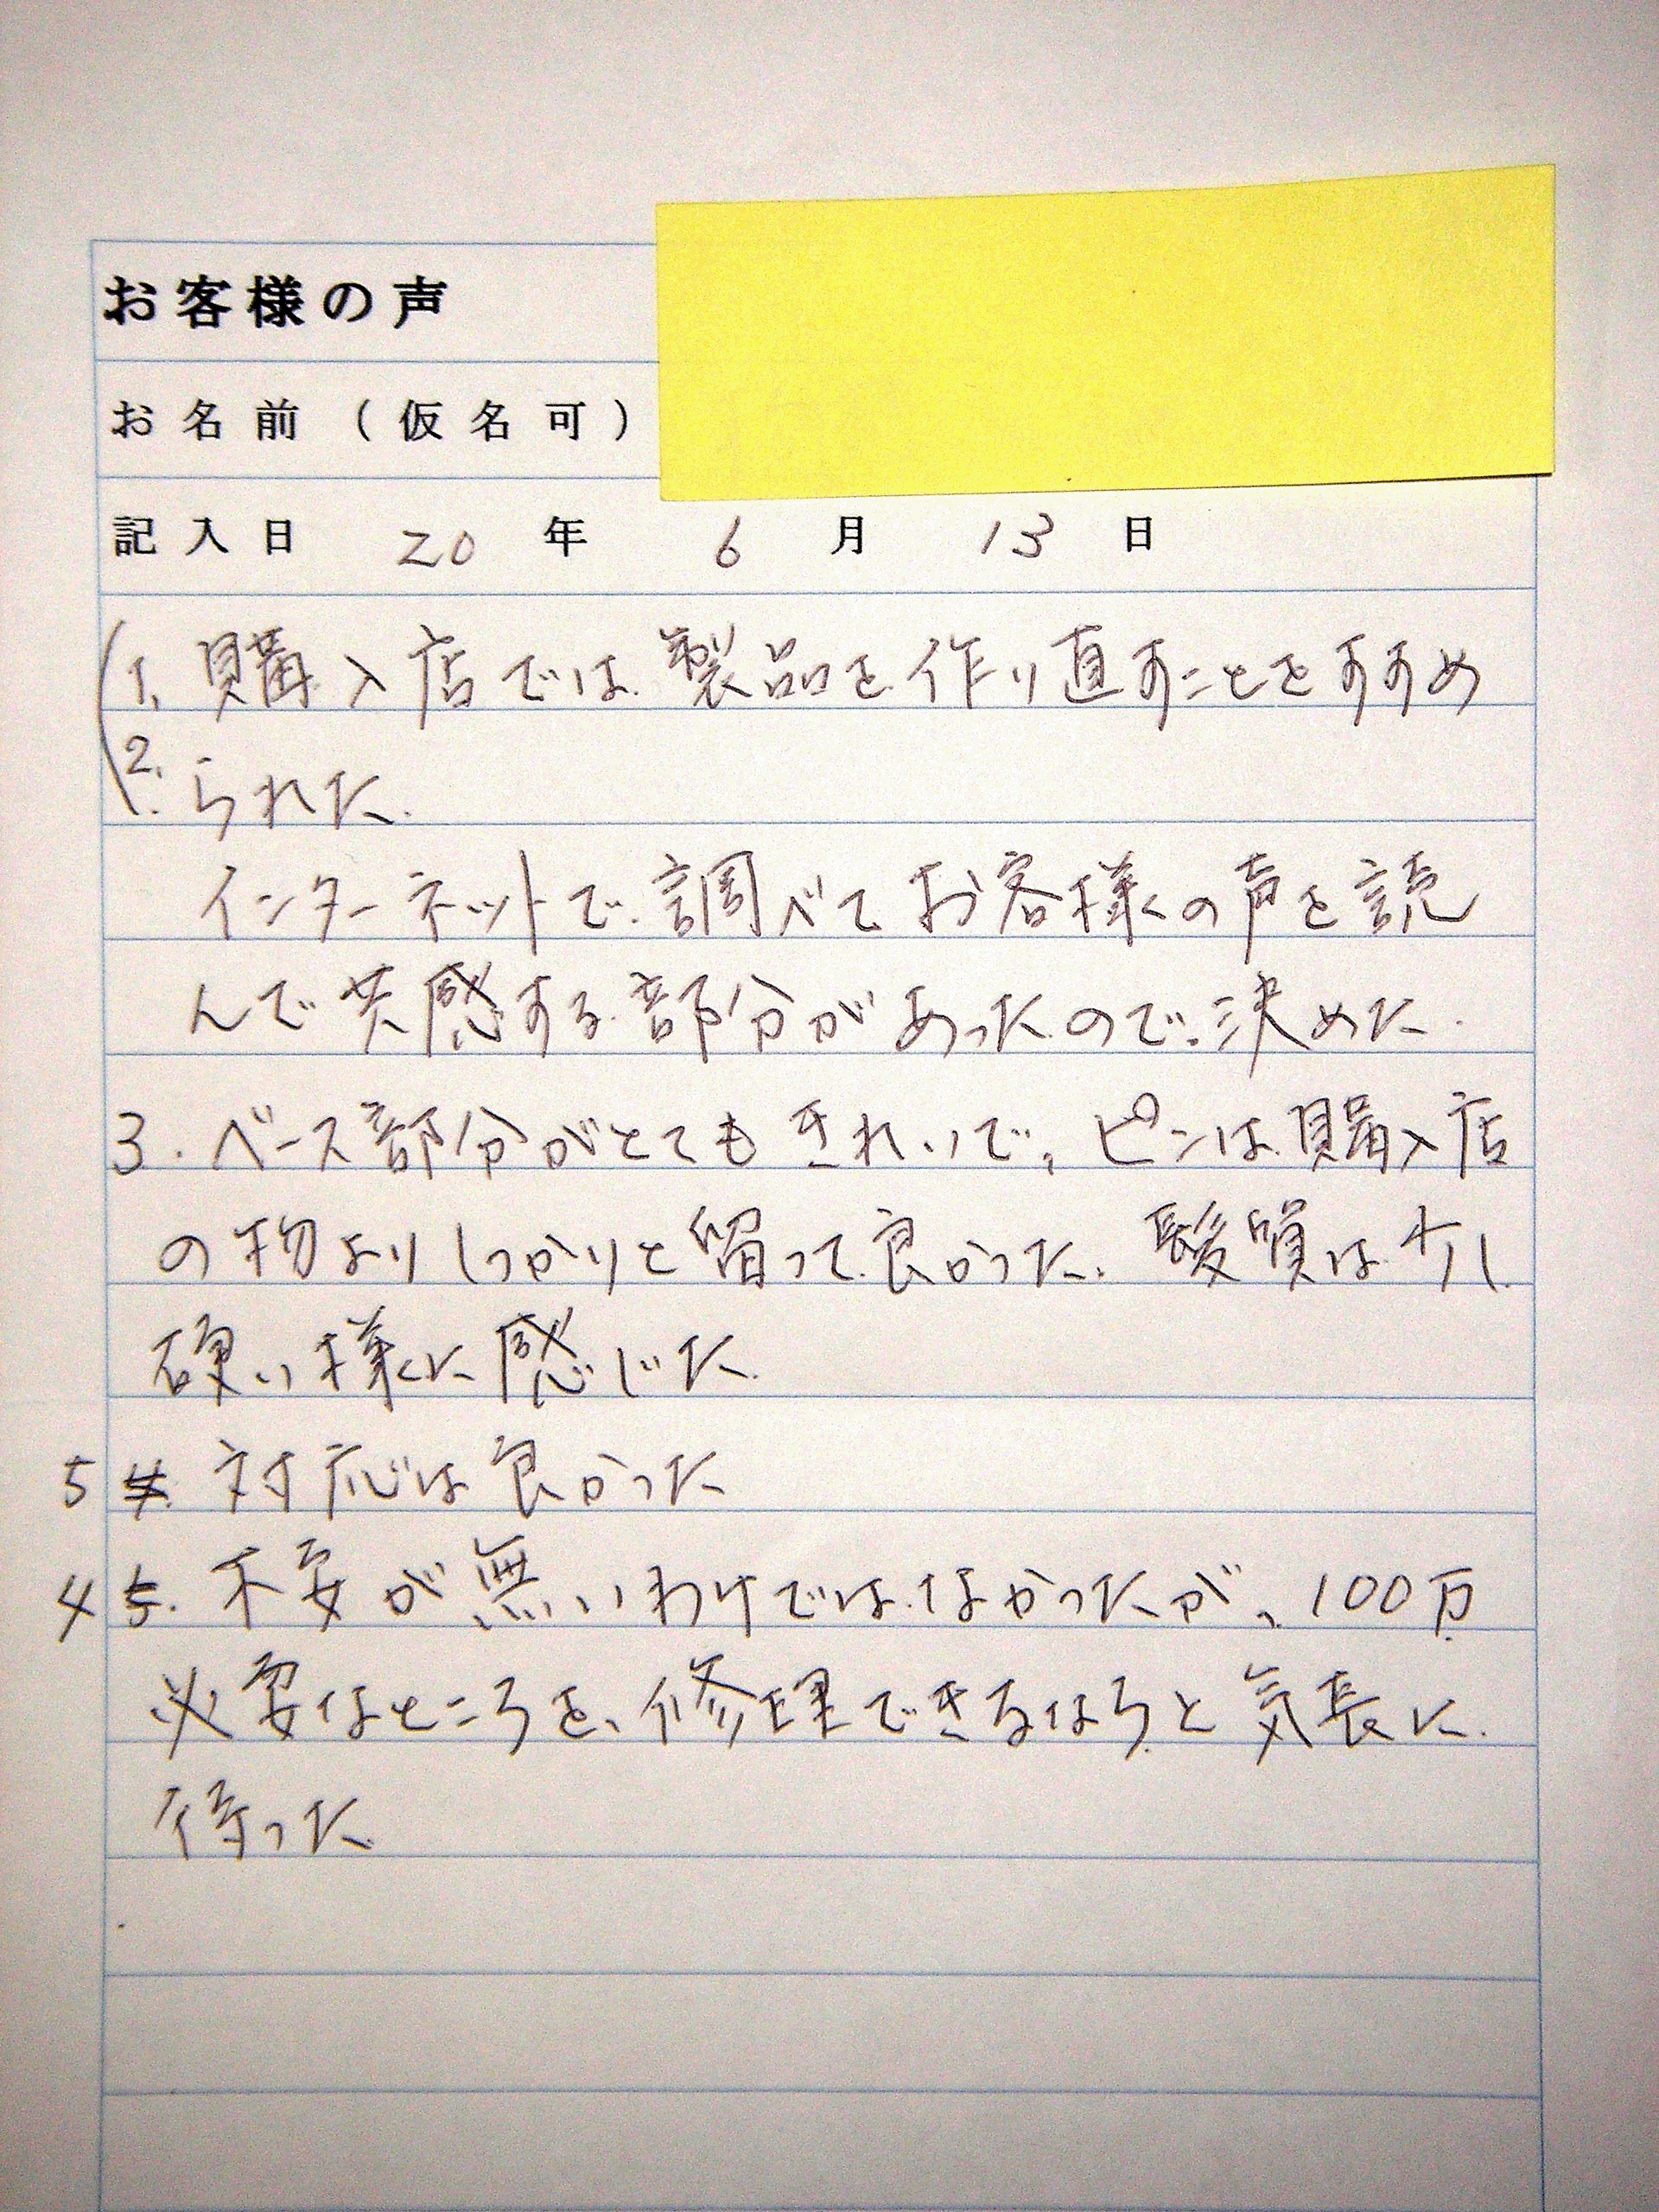 お客様の声
お名前（仮名可）
記入日 20 年 6 月 13 日
1. 購入店では製品を作り直すことをすすめ
2. られた.
インターネットで調べてお客様の声を読
んで共感する部分があったので決めた.
3. ベース部分がとてもきれいで、ピンは購入店
の物よりしっかりと留って良かった. 髪質は少し
硬い様に感じた.
5 対応は良かった
4 不安が無いわけではなかったが、100万
必要なところを、修理できるならと気長に
待った